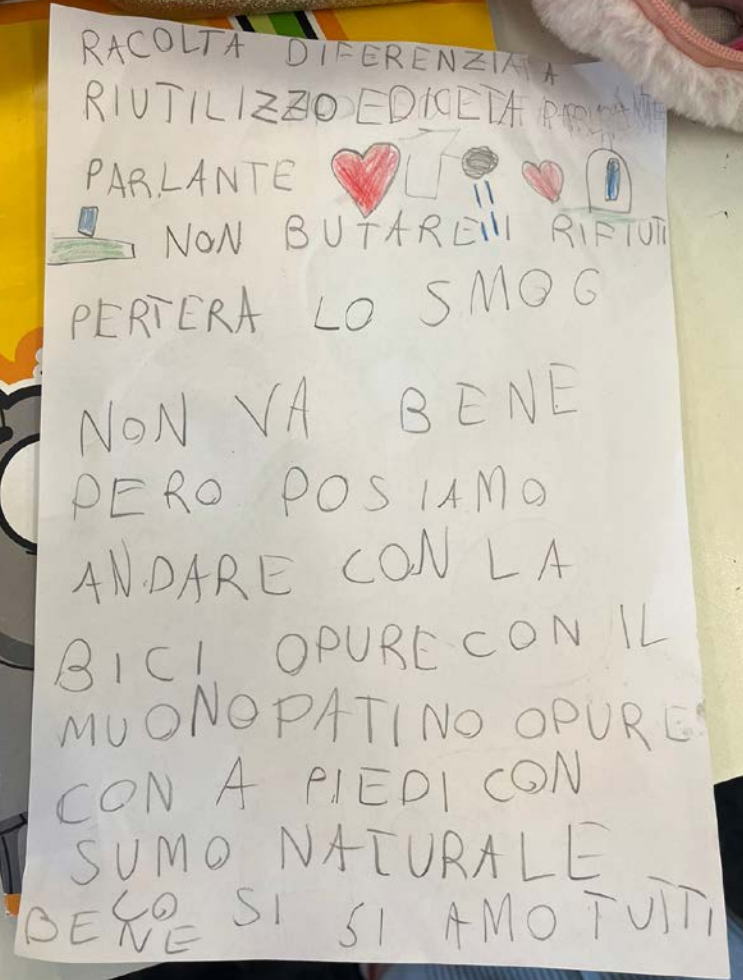 RACOLTA DIFERENZIATA
RIUTILIZZO EDICETA
PARLANTE
NON BUTARE I RIFIUTI
PERTERA LO SMOG
NON VA BENE
PERO POSIAMO
ANDARE CON LA
BICI OPURE CON IL
MUONOPATINO OPURE
CON A PIEDI CON
SUMO NATURALE
BENE LO SI SI AMO TUTTI
NE